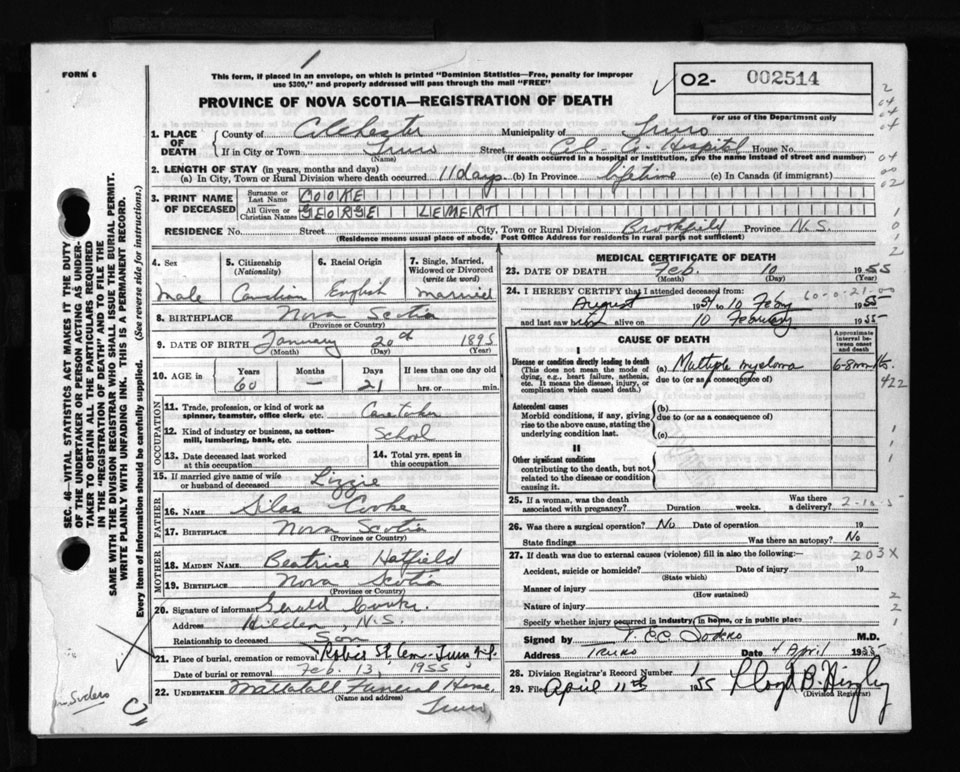 FORM 6
This form, if placed in an envelope, on which is printed "Dominion Statistics—Free, penalty for improper
use $300," and properly addressed will pass through the mail "FREE"
PROVINCE OF NOVA SCOTIA—REGISTRATION OF DEATH
02- 002514
For use of the Department only
1. PLACE OF DEATH County of Colchester Municipality of Truro
If in City or Town Truro (Name) Street Col. Co. Hospital House No.
(If death occurred in a hospital or institution, give the name instead of street and number)
2. LENGTH OF STAY (in years, months and days)
(a) In City, Town or Rural Division where death occurred 11 days (b) In Province lifetime (c) In Canada (if immigrant)
3. PRINT NAME OF DECEASED Surname or Last Name COOKE
All Given or Christian Names GEORGE LEMERT
RESIDENCE No. Street City, Town or Rural Division Brookfield Province N.S.
(Residence means usual place of abode. Post Office Address for residents in rural parts not sufficient)
4. Sex Male
5. Citizenship (Nationality) Canadian
6. Racial Origin English
7. Single, Married, Widowed or Divorced (write the word) Married
8. BIRTHPLACE Nova Scotia
(Province or Country)
9. DATE OF BIRTH January 20th 1895
(Month) (Day) (Year)
10. AGE in Years 60 Months — Days 21 If less than one day old hrs. or min.
OCCUPATION
11. Trade, profession, or kind of work as spinner, teamster, office clerk, etc. Caretaker
12. Kind of industry or business, as cotton-mill, lumbering, bank, etc. School
13. Date deceased last worked at this occupation
14. Total yrs. spent in this occupation
15. If married give name of wife or husband of deceased Lizzie
FATHER
16. NAME Silas Cooke
17. BIRTHPLACE Nova Scotia
(Province or Country)
MOTHER
18. MAIDEN NAME Beatrice Hatfield
19. BIRTHPLACE Nova Scotia
(Province or Country)
20. Signature of informant Gerald Cooke.
Address Hilden, N.S.
Relationship to deceased Son
21. Place of burial, cremation or removal Robie St Cem - Truro N.S.
Date of burial or removal Feb. 13, 1955
22. UNDERTAKER Mattatall Funeral Home,
(Name and address) Truro
MEDICAL CERTIFICATE OF DEATH
23. DATE OF DEATH Feb. 10 1955
(Month) (Day) (Year)
24. I HEREBY CERTIFY that I attended deceased from: 60-0-21-00
August 1954 to 10 Feby 1955
and last saw him alive on 10 February 1955
CAUSE OF DEATH
Approximate interval between onset and death
I
Disease or condition directly leading to death (a) Multiple myeloma 6-8 months.
(This does not mean the mode of dying, e.g., heart failure, asthenia, etc. It means the disease, injury, or complication which caused death.)
due to (or as a consequence of)
422
Antecedent causes
Morbid conditions, if any, giving rise to the above cause, stating the underlying condition last.
(b)
due to (or as a consequence of)
(c)
II
Other significant conditions
contributing to the death, but not related to the disease or condition causing it.
25. If a woman, was the death associated with pregnancy? Duration weeks. Was there a delivery?
26. Was there a surgical operation? No Date of operation 19
State findings Was there an autopsy? No
27. If death was due to external causes (violence) fill in also the following:— 203X
Accident, suicide or homicide? Date of injury 19
(State which)
Manner of injury
(How sustained)
Nature of injury
Specify whether injury occurred in industry, in home, or in public place
Signed by M.D.
Address Truro Date 4 April 1955
28. Division Registrar's Record Number 1
29. Filed April 11th 1955 Lloyd B.
(Division Registrar)
SEC. 46—VITAL STATISTICS ACT MAKES IT THE DUTY
OF THE UNDERTAKER OR PERSON ACTING AS UNDER-
TAKER TO OBTAIN ALL THE PARTICULARS REQUIRED
IN THE "REGISTRATION OF DEATH" AND TO FILE THE
SAME WITH THE DIVISION REGISTRAR WHO SHALL ISSUE THE BURIAL PERMIT.
WRITE PLAINLY WITH UNFADING INK. THIS IS A PERMANENT RECORD.
Every item of information should be carefully supplied. (See reverse side for instructions.)